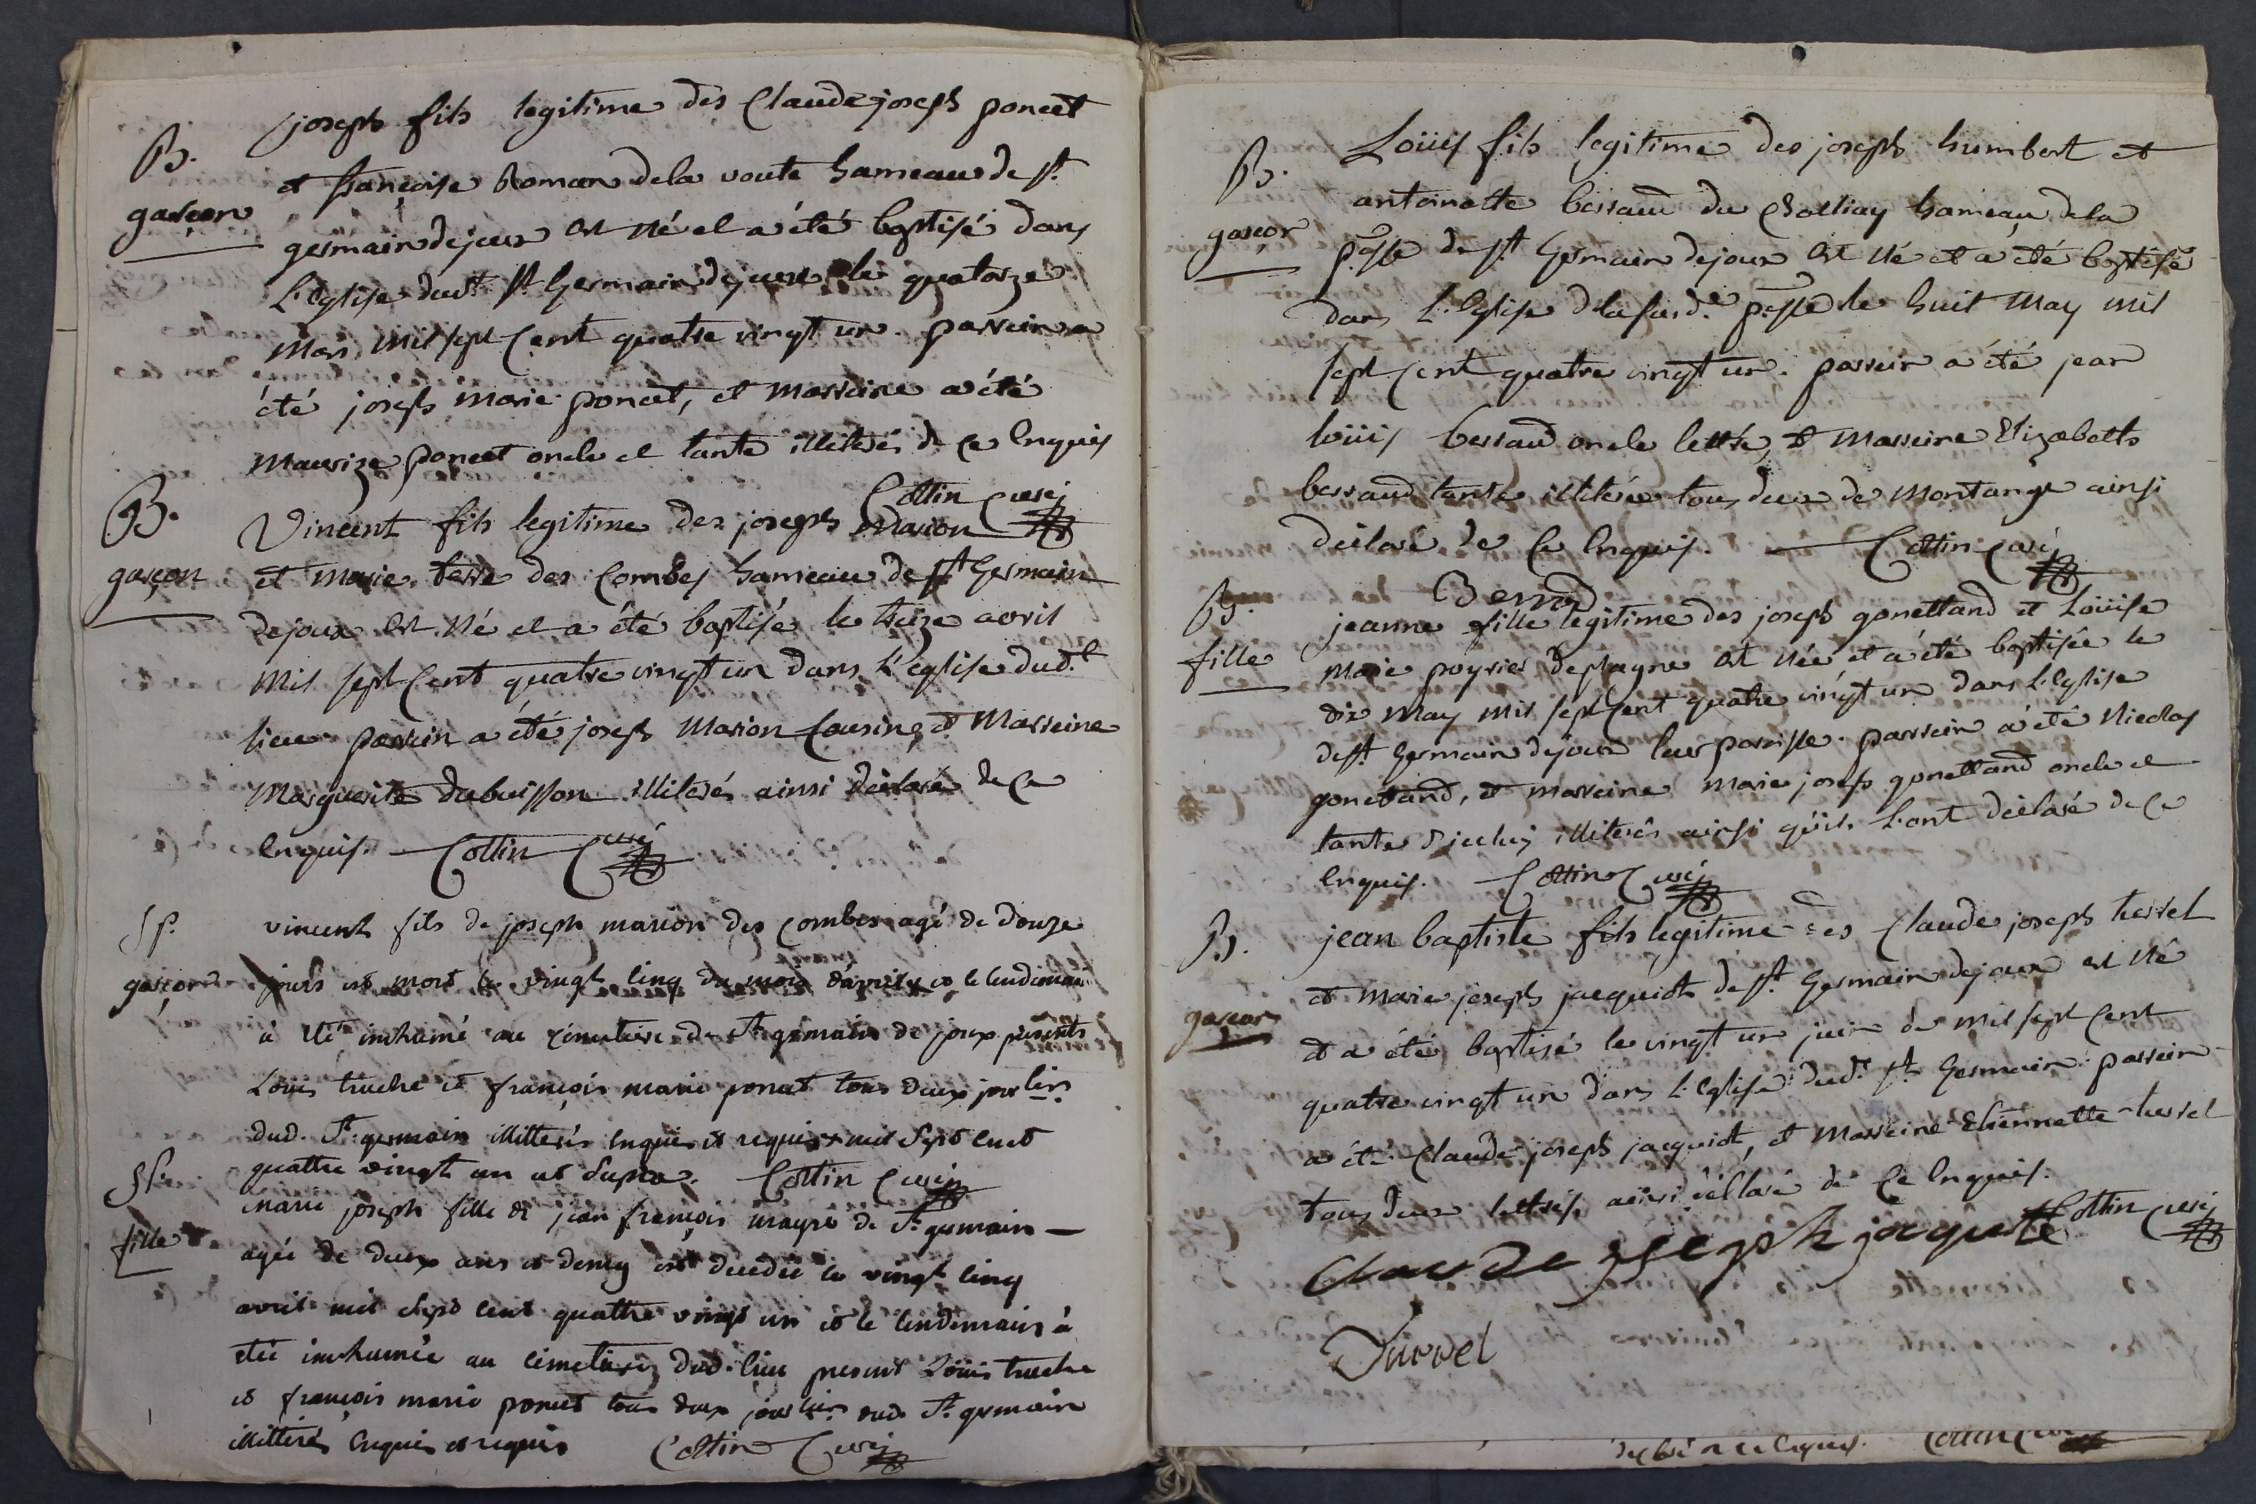 B.
garçon
joseph fils legitime des Claude joseph poncet
et françoise Roman dela voute hameau de st
germain dejoux est né et a été baptisé dans
L'Eglise dudt st Germain dejoux le quatorze
Mars Mil sept Cent quatre vingt un. parrein a
été joseph marie poncet, et Marreine a été
Maurize poncet oncle et tante illiterés de Ce Enquis
Cottin Curé
B.
garçon
Vincent fils legitime des joseph Marion
et Marie terre des Combes hameau de st Germain
dejoux est né et a été baptisé le treize avril
Mil sept Cent quatre vingt un dans L'eglise dudt
lieu parrein a été joseph Marion Cousin, et Marreine
Marguerite dubuisson illiterés ainsi déclaré de Ce
Enquis. Cottin Curé
Sp.
garçon
vincent fils de joseph marion des combes agé de douze
jours est mort le vingt cinq du mois d'avril et le lendemain
à été inhumé au cimetiere de St germain de joux presents
Louis truche et françois marie poncet tous deux jourliers
dud. St germain illitterés enquis et requis mil sept cent
quattre vingt un ut supra. Cottin Curé
Sp.
fille
marie joseph fille de jean françois mayre de St germain
agée de deux ans et demy est decedée le vingt cinq
avril mil sept cent quattre vingt un et le lendemain à
eté inhumée au cimetiere dud. lieu present Louis truche
et françois marie poncet tous deux jourliers dud. St germain
illitterés enquis et requis Cottin Curé
B.
garçon
Loüis fils legitime des joseph humbert et
antoinette bessand du Cholliay hameau dela
psse de st Germain dejoux est né et a été baptisé
dans L'Eglise dla susde psse le huit May mil
sept Cent quatre vingt un. parrein a été jean
loüis bessand oncle lettré, et Marreine Elizabeth
bessand tante illiterée tous deux de Montange ainsi
déclaré de Ce Enquis. Cottin Curé
B.
fille
Berrod
jeanne fille legitime des joseph gonettand et Loüise
Marie poyrier deplagne est née et a été baptisée le
dix May mil sept Cent quatre vingt un dans L'Eglise
dest Germain dejoux leur paroisse. parrein a été Nicolas
gonettand, et marreine marie joseph gonettand oncle et
tante d'icelui illiterés ainsi qu'ils L'ont déclaré de Ce
Enquis. Cottin Curé
B.
garçon
jean baptiste fils legitime des Claude joseph turrel
et marie joseph jacquiot de st Germain dejoux est né
et a été baptisé le vingt un juin de mil sept Cent
quatre vingt un dans L'Eglise dudt st Germain parrein
a été Claude joseph jacquiot, et Marreine Etiennette turrel
tous deux lettrés ainsi déclaré de Ce Enquis.
Cottin Curé
claude joseph
Turrel